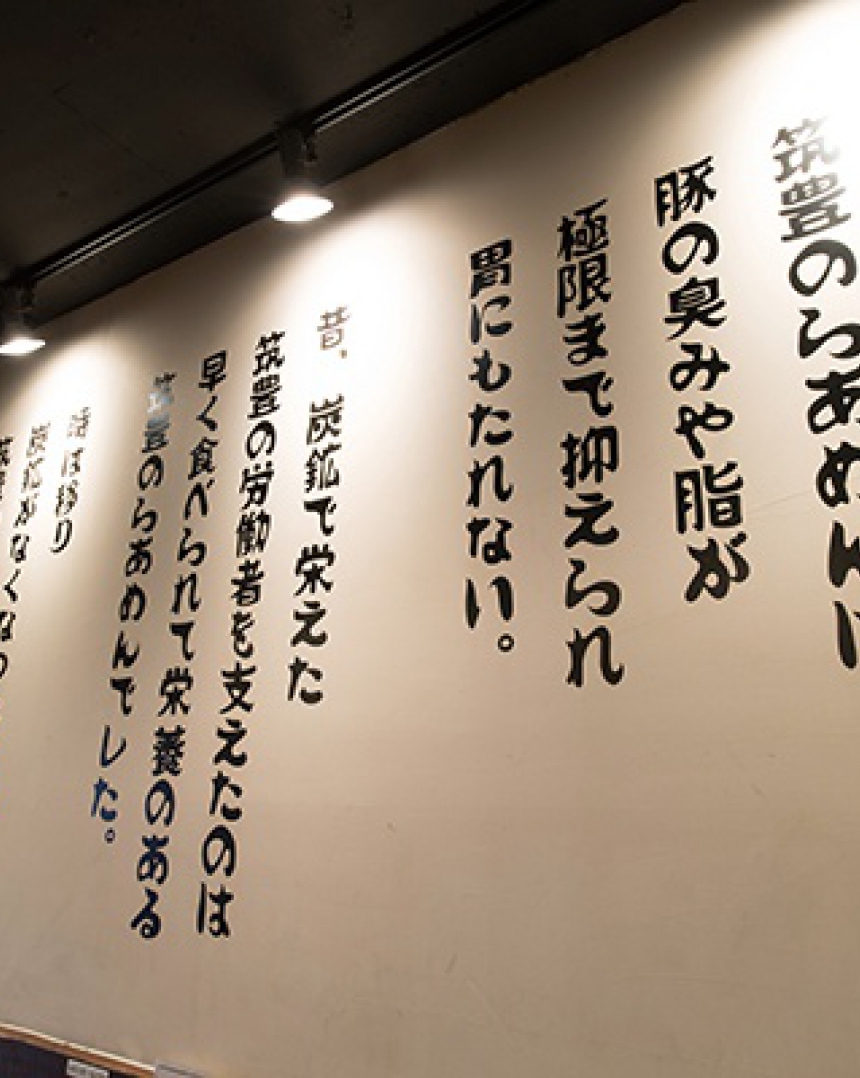 筑豊のらあめん
豚の臭みや脂が
極限まで抑えられ
胃にもたれない。
昔、炭鉱で栄えた
筑豊の労働者を支えたのは
早く食べられて栄養のある
筑豊のらあめんでした。
時は移り
炭鉱がなくなっ